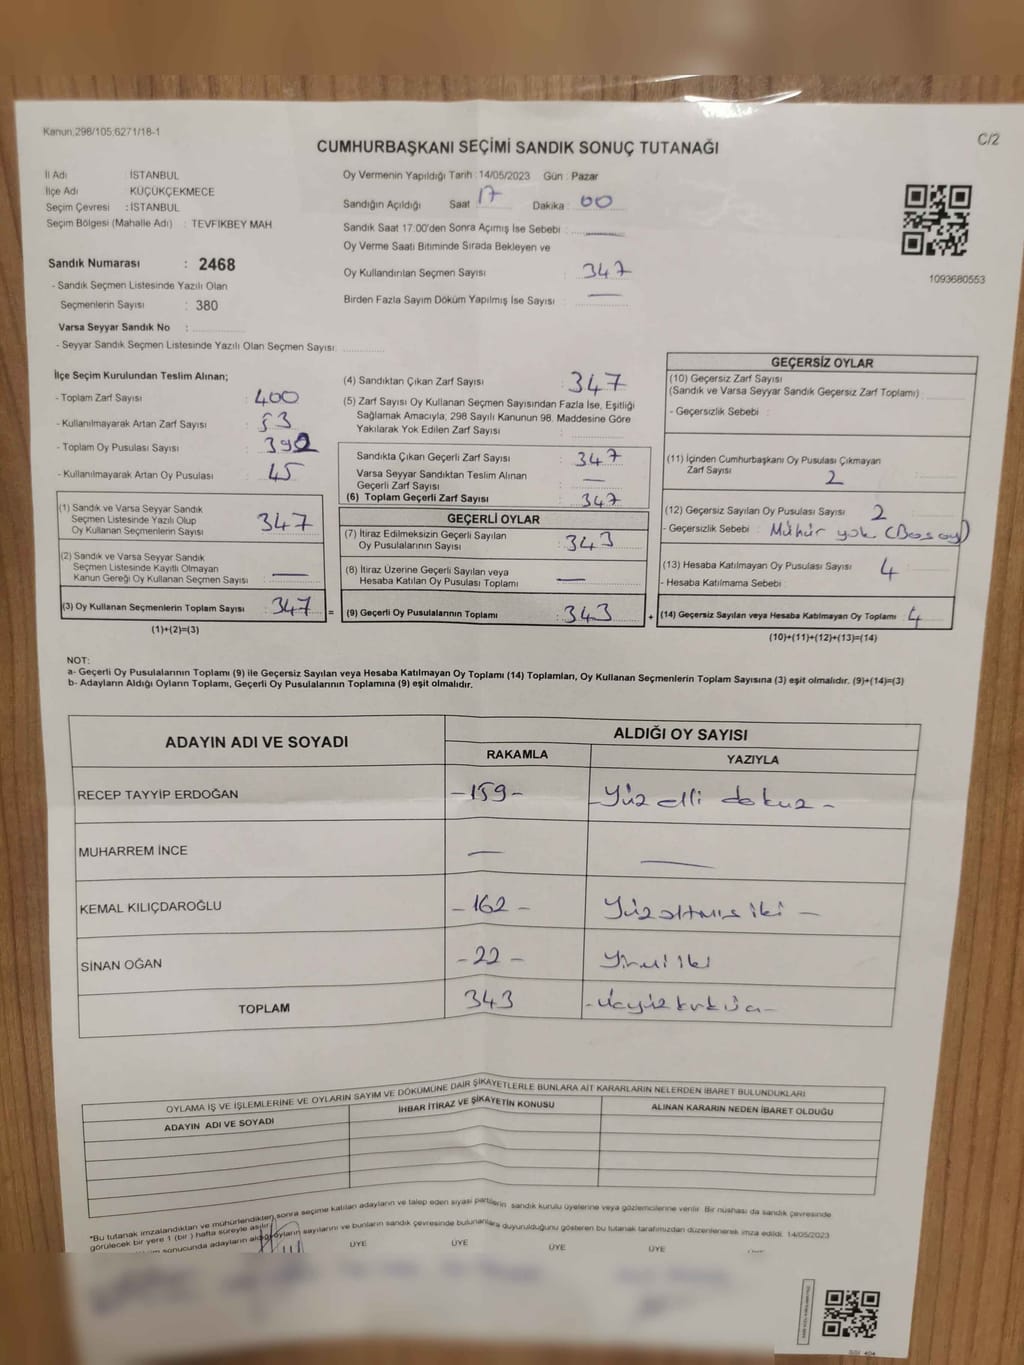 Kanun,298/105,6271/18-1
C/2
CUMHURBAŞKANI SEÇİMİ SANDIK SONUÇ TUTANAĞI
İl Adı : İSTANBUL
İlçe Adı KÜÇÜKÇEKMECE
Seçim Çevresi : İSTANBUL
Seçim Bölgesi (Mahalle Adı) : TEVFİKBEY MAH
Sandık Numarası : 2468
- Sandık Seçmen Listesinde Yazılı Olan
Seçmenlerin Sayısı : 380
Varsa Seyyar Sandık No :
- Seyyar Sandık Seçmen Listesinde Yazılı Olan Seçmen Sayısı:
Oy Vermenin Yapıldığı Tarih : 14/05/2023 Gün : Pazar
Sandığın Açıldığı Saat 17 Dakika : 00
Sandık Saat 17:00'den Sonra Açımış İse Sebebi : —
Oy Verme Saati Bitiminde Sırada Bekleyen ve
Oy Kullandırılan Seçmen Sayısı : 347
Birden Fazla Sayım Döküm Yapılmış İse Sayısı : —
1093680553
İlçe Seçim Kurulundan Teslim Alınan;
- Toplam Zarf Sayısı : 400
- Kullanılmayarak Artan Zarf Sayısı : 53
- Toplam Oy Pusulası Sayısı : 392
- Kullanılmayarak Artan Oy Pusulası : 45
(1) Sandık ve Varsa Seyyar Sandık
Seçmen Listesinde Yazılı Olup
Oy Kullanan Seçmenlerin Sayısı : 347
(2) Sandık ve Varsa Seyyar Sandık
Seçmen Listesinde Kayıtlı Olmayan
Kanun Gereği Oy Kullanan Seçmen Sayısı : —
(3) Oy Kullanan Seçmenlerin Toplam Sayısı : 347 =
(1)+(2)=(3)
(4) Sandıktan Çıkan Zarf Sayısı : 347
(5) Zarf Sayısı Oy Kullanan Seçmen Sayısından Fazla İse, Eşitliği
Sağlamak Amacıyla; 298 Sayılı Kanunun 98. Maddesine Göre
Yakılarak Yok Edilen Zarf Sayısı :
Sandıkta Çıkan Geçerli Zarf Sayısı : 347
Varsa Seyyar Sandıktan Teslim Alınan
Geçerli Zarf Sayısı : —
(6) Toplam Geçerli Zarf Sayısı : 347
GEÇERLİ OYLAR
(7) İtiraz Edilmeksizin Geçerli Sayılan
Oy Pusulalarının Sayısı : 343
(8) İtiraz Üzerine Geçerli Sayılan veya
Hesaba Katılan Oy Pusulası Toplamı : —
(9) Geçerli Oy Pusulalarının Toplamı : 343 +
GEÇERSİZ OYLAR
(10) Geçersiz Zarf Sayısı
(Sandık ve Varsa Seyyar Sandık Geçersiz Zarf Toplamı)
- Geçersizlik Sebebi :
(11) İçinden Cumhurbaşkanı Oy Pusulası Çıkmayan
Zarf Sayısı 2
(12) Geçersiz Sayılan Oy Pusulası Sayısı 2
- Geçersizlik Sebebi : Mühür yok (Boş oy)
(13) Hesaba Katılmayan Oy Pusulası Sayısı 4
- Hesaba Katılmama Sebebi :
(14) Geçersiz Sayılan veya Hesaba Katılmayan Oy Toplamı : 4
(10)+(11)+(12)+(13)=(14)
NOT:
a- Geçerli Oy Pusulalarının Toplamı (9) ile Geçersiz Sayılan veya Hesaba Katılmayan Oy Toplamı (14) Toplamları, Oy Kullanan Seçmenlerin Toplam Sayısına (3) eşit olmalıdır. (9)+(14)=(3)
b- Adayların Aldığı Oyların Toplamı, Geçerli Oy Pusulalarının Toplamına (9) eşit olmalıdır.
ADAYIN ADI VE SOYADI ALDIĞI OY SAYISI
RAKAMLA YAZIYLA
RECEP TAYYİP ERDOĞAN -159- -Yüz elli dokuz-
MUHARREM İNCE — —
KEMAL KILIÇDAROĞLU -162- Yüzaltmış iki -
SİNAN OĞAN -22- Yirmi iki
TOPLAM 343 -üçyüzkırküç-
OYLAMA İŞ VE İŞLEMLERİNE VE OYLARIN SAYIM VE DÖKÜMÜNE DAİR ŞİKAYETLERLE BUNLARA AİT KARARLARIN NELERDEN İBARET BULUNDUKLARI
ADAYIN ADI VE SOYADI İHBAR İTİRAZ VE ŞİKAYETİN KONUSU ALINAN KARARIN NEDEN İBARET OLDUĞU
*Bu tutanak imzalandıktan ve mühürlendikten sonra seçime katılan adayların ve talep eden siyasi partilerin sandık kurulu üyelerine veya gözlemcilerine verilir. Bir nüshası da sandık çevresinde
görülecek bir yere 1 (bir) hafta süreyle asılır.
sonucunda adayların aldığı oyların sayılarını ve bunların sandık çevresinde bulunanlara duyurulduğunu gösteren bu tutanak tarafımızdan düzenlenerek imza edildi. 14/05/2023
ÜYE ÜYE ÜYE ÜYE